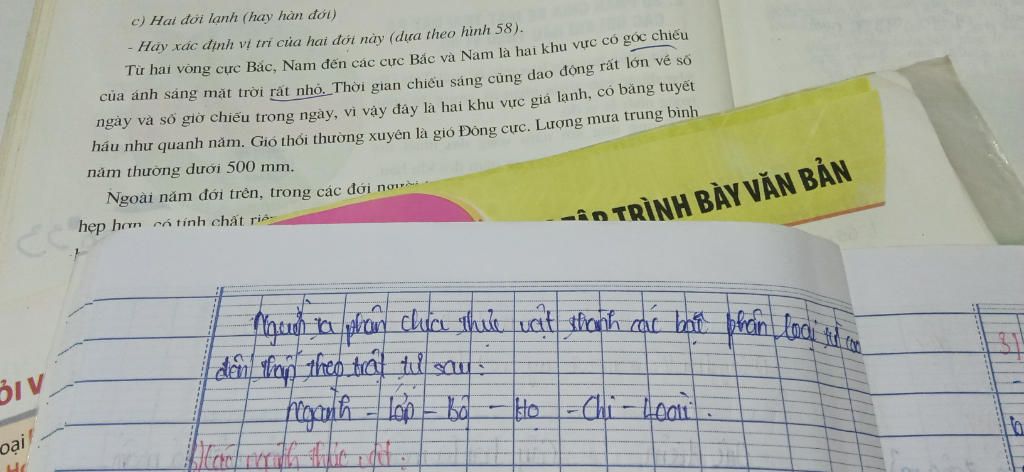 c) Hai đới lạnh (hay hàn đới)
- Hãy xác định vị trí của hai đới này (dựa theo hình 58).
Từ hai vòng cực Bắc, Nam đến các cực Bắc và Nam là hai khu vực có góc chiếu
của ánh sáng mặt trời rất nhỏ. Thời gian chiếu sáng cũng dao động rất lớn về số
ngày và số giờ chiếu trong ngày, vì vậy đây là hai khu vực giá lạnh, có băng tuyết
hầu như quanh năm. Gió thổi thường xuyên là gió Đông cực. Lượng mưa trung bình
năm thường dưới 500 mm.
Ngoài năm đới trên, trong các đới người
hẹp hơn, có tính chất riêng
TẬP TRÌNH BÀY VĂN BẢN
Người ta phân chia thực vật thành các bậc phân loại từ cao
đến thấp theo trật tự sau:
Ngành - Lớp - Bộ - Họ - Chi - Loài.
Các ngành thực vật:
ỎI V
oại
3)